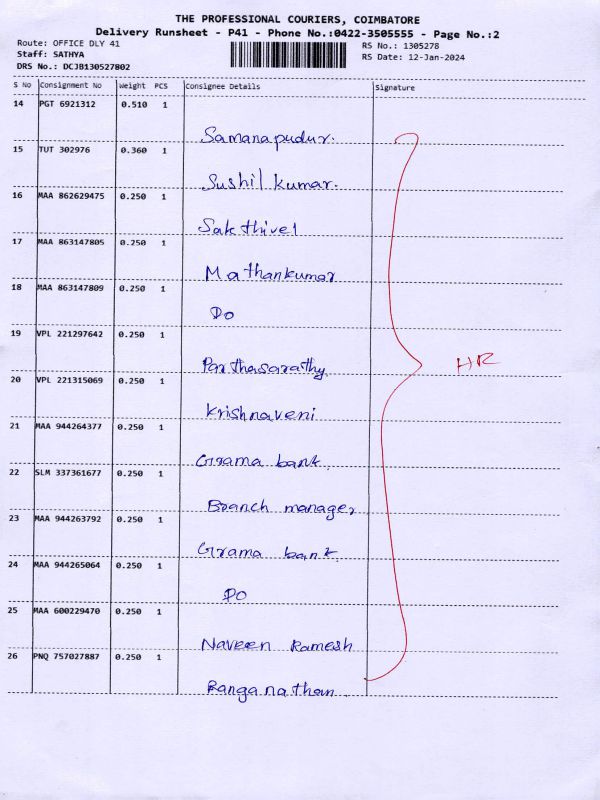 THE PROFESSIONAL COURIERS, COIMBATORE
Delivery Runsheet - P41 - Phone No.:0422-3505555 - Page No.:2
Route: OFFICE DLY 41
Staff: SATHYA
DRS No.: DCJB130527802
RS No.: 1305278
RS Date: 12-Jan-2024
S No Consignment No Weight PCS Consignee Details Signature
14 PGT 6921312 0.510 1
Samanapudur.
15 TUT 302976 0.360 1
Sushil kumar.
16 MAA 862629475 0.250 1
Sakthivel
17 MAA 863147805 0.250 1
Mathankumar
18 MAA 863147809 0.250 1
DO
19 VPL 221297642 0.250 1
Parthasarathy
HR
20 VPL 221315069 0.250 1
Krishnaveni
21 MAA 944264377 0.250 1
Grama bank
22 SLM 337361677 0.250 1
Branch manager
23 MAA 944263792 0.250 1
Grama bank
24 MAA 944265064 0.250 1
DO
25 MAA 600229470 0.250 1
Naveen Ramesh
26 PNQ 757027887 0.250 1
Ranganathan